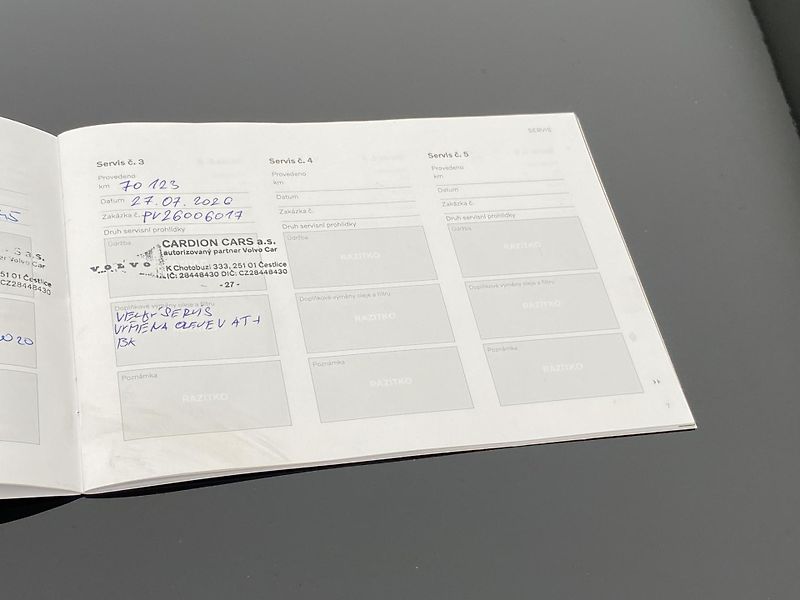 SERVIS
Servis č. 3
Provedeno
km 70 123
Datum 27.07.2020
Zakázka č. PV26006017
Druh servisní prohlídky
Údržba
VOLVO
CARDION CARS a.s.
autorizovaný partner Volvo Car
K Chotobuzi 333, 251 01 Čestlice
IČ: 28448430 DIČ: CZ28448430
-27-
Doplňkové výměny oleje a filtru
VELKÝ SERVIS
VÝMĚNA OLEJE V AT +
BK
Poznámka
RAZÍTKO
Servis č. 4
Provedeno
km
Datum
Zakázka č.
Druh servisní prohlídky
Údržba
RAZÍTKO
Doplňkové výměny oleje a filtru
RAZÍTKO
Poznámka
RAZÍTKO
Servis č. 5
Provedeno
km
Datum
Zakázka č.
Druh servisní prohlídky
Údržba
RAZÍTKO
Doplňkové výměny oleje a filtru
RAZÍTKO
Poznámka
RAZÍTKO
››
7
S a.s.
Volvo Car
251 01 Čestlice
CZ28448430